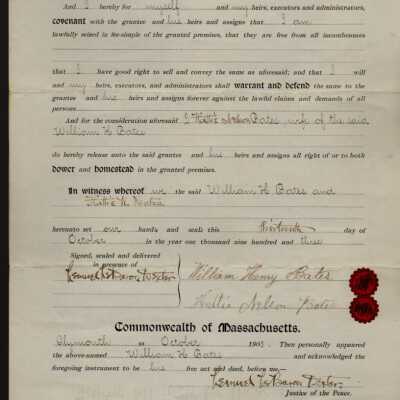 And I hereby for myself
and my heirs, executors and administrators,
covenant with the grantee and his heirs and assigns that I am
lawfully seized in fee-simple of the granted premises, that they are free from all incumbrances
that I have good right to sell and convey the same as aforesaid; and that I will
and my heirs, executors, and administrators shall warrant and defend the same to the
grantee and his heirs and assigns forever against the lawful claims and demands of all
persons
And for the consideration aforesaid I Hattie Nelson Bates wife of the said
William H Bates
do hereby release unto the said grantee and his heirs and assigns all right of or to both
dower and homestead in the granted premises.
In witness whereof we the said William H Bates and
Hattie N.
hereunto set our hands and seals this thirteenth day of
October in the year one thousand nine hundred and three
Signed, sealed and delivered
in presence of
Lemuel LeBaron Dexter
William Henry Bates
Hattie Nelson Bates
Commonwealth of Massachusetts.
Plymouth ss October 190 Then personally appeared
the above-named William H Bates and acknowledged the
foregoing instrument to be his free act and deed, before me,—
Lemuel LeBaron Dexter
Justice of the Peace.